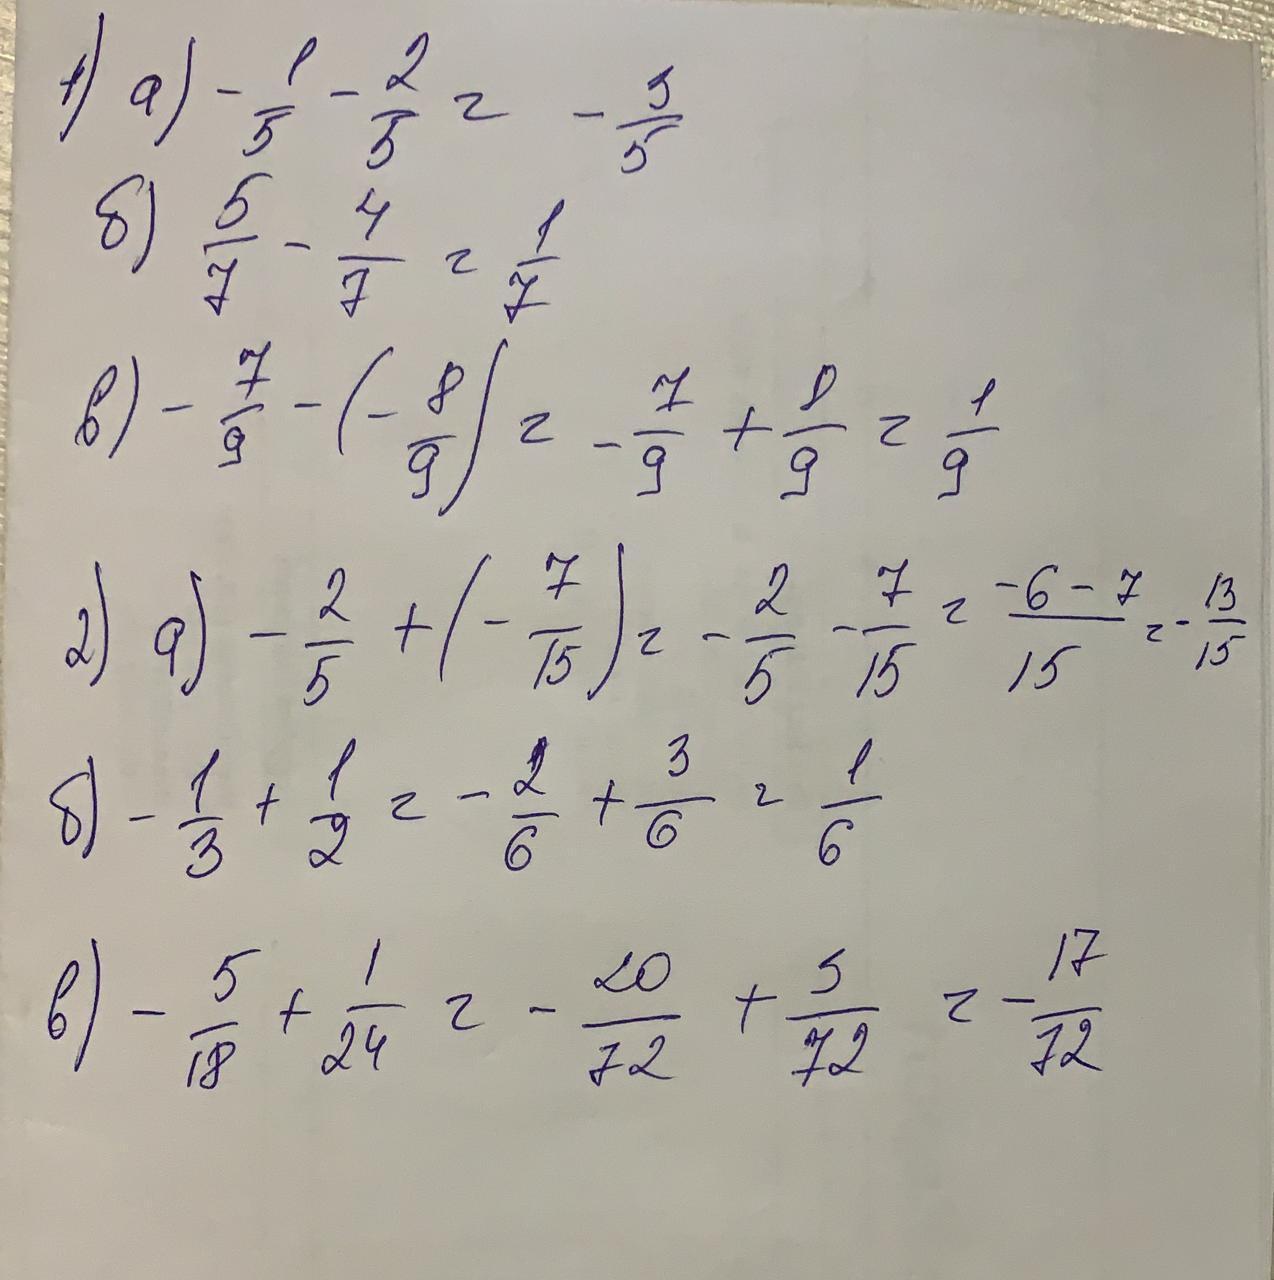 1) а) - 1/5 - 2/5 = - 3/5
б) 5/7 - 4/7 = 1/7
в) - 7/9 - (- 8/9) = - 7/9 + 8/9 = 1/9
2) а) - 2/5 + (- 7/15) = - 2/5 - 7/15 = -6 - 7/15 = - 13/15
б) - 1/3 + 1/2 = - 2/6 + 3/6 = 1/6
в) - 5/18 + 1/24 = - 20/72 + 3/72 = - 17/72